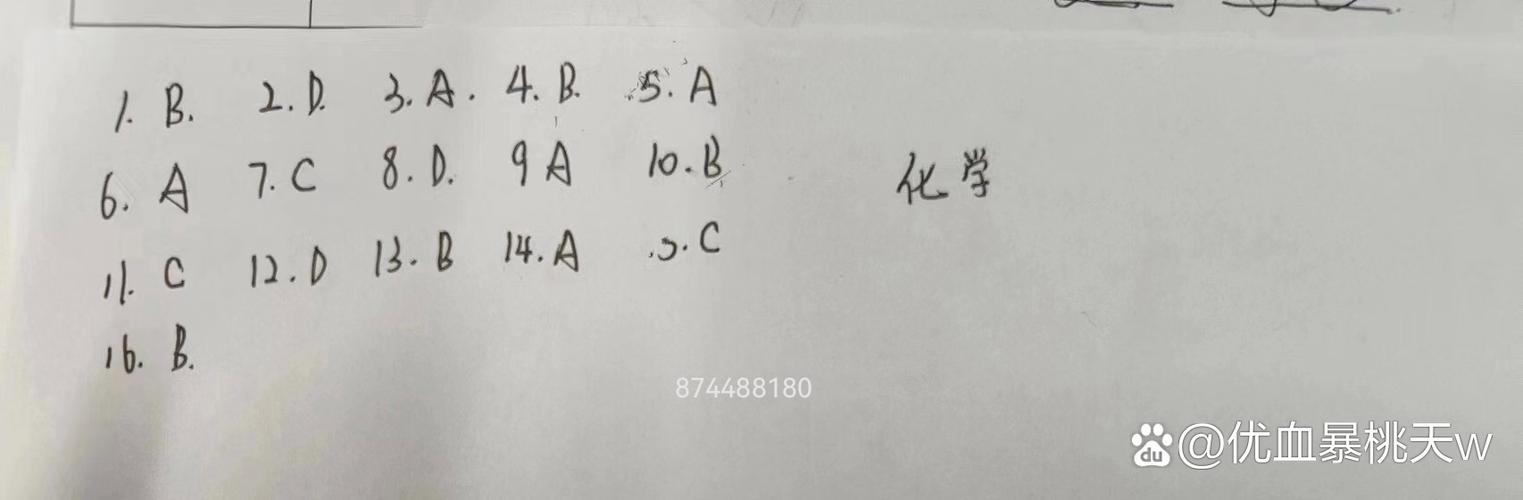 1. B. 2. D. 3. A. 4. B. 5. A
6. A 7. C 8. D. 9 A 10. B
化学
11. C 12. D 13. B 14. A 5. C
16. B.
874488180
du @优血暴桃天w